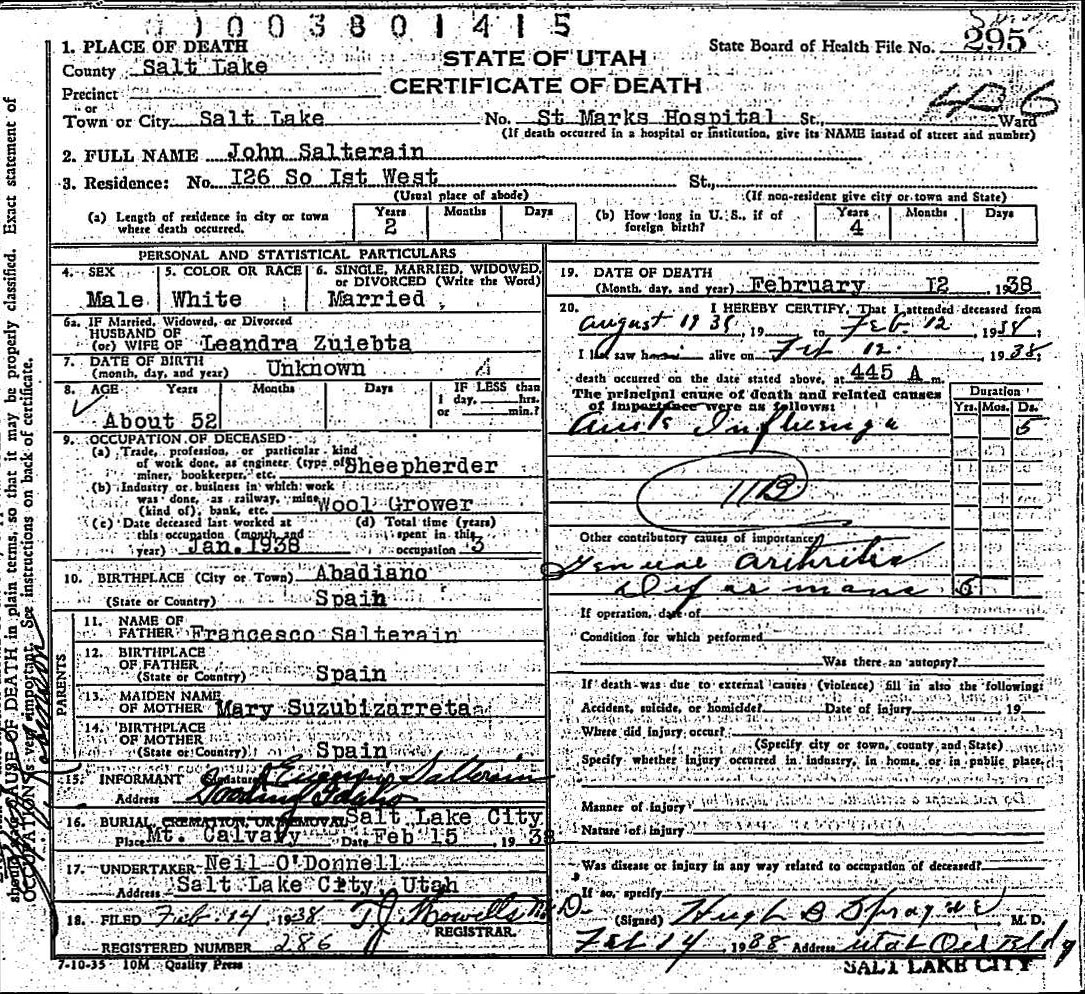 1003801415
1. PLACE OF DEATH
County Salt Lake
STATE OF UTAH
CERTIFICATE OF DEATH
State Board of Health File No. 295
Precinct
or
Town or City Salt Lake No. St Marks Hospital St., Ward
436
(If death occurred in a hospital or institution, give its NAME instead of street and number)
2. FULL NAME John Salterain
3. Residence: No. I26 So Ist West St.,
(Usual place of abode) (If non-resident give city or town and State)
(a) Length of residence in city or town where death occurred. Years 2 Months Days
(b) How long in U. S., if of foreign birth? Years 4 Months Days
PERSONAL AND STATISTICAL PARTICULARS
4. SEX Male
5. COLOR OR RACE White
6. SINGLE, MARRIED, WIDOWED, or DIVORCED (Write the Word) Married
6a. IF Married, Widowed, or Divorced
HUSBAND OF
(or) WIFE OF Leandra Zuiebta
7. DATE OF BIRTH
(month, day, and year) Unknown
8. AGE Years Months Days IF LESS than 1 day, hrs. or min.?
About 52
9. OCCUPATION OF DECEASED
(a) Trade, profession, or particular kind
of work done, as engineer (type of) Sheepherder
miner, bookkeeper, etc.
(b) Industry or business in which work
was done, as railway, mine
(kind of), bank, etc. Wool Grower
(c) Date deceased last worked at
this occupation (month and
year) Jan. 1938
(d) Total time (years)
spent in this
occupation 3
10. BIRTHPLACE (City or Town) Abadiano
(State or Country) Spain
PARENTS
11. NAME OF
FATHER Francesco Salterain
12. BIRTHPLACE
OF FATHER
(State or Country) Spain
13. MAIDEN NAME
OF MOTHER Mary Suzubizarreta
14. BIRTHPLACE
OF MOTHER
(State or Country) Spain
15. INFORMANT (Signature) Salterain
Address Gooding Idaho
16. BURIAL, CREMATION, OR REMOVAL Salt Lake City
Place Mt. Calvary Date Feb 15, 1938
17. UNDERTAKER Neil O'Donnell
Address Salt Lake City, Utah
18. FILED Feb. 14 1938 T J Howells M.D.
REGISTRAR.
REGISTERED NUMBER 286
7-10-35 10M Quality Press
19. DATE OF DEATH
(Month, day, and year) February I2 1938
20. I HEREBY CERTIFY, That I attended deceased from
August 19 19 to Feb. 12 1938;
I last saw h alive on Feb 12. 1938;
death occurred on the date stated above, at 445 A m.
The principal cause of death and related causes
of importance were as follows:
Duration
Yrs. Mos. Ds.
Acute Influenza 5
11B
Other contributory causes of importance
arthritis
6
If operation, date of
Condition for which performed
Was there an autopsy?
If death was due to external causes (violence) fill in also the following:
Accident, suicide, or homicide? Date of injury 19
Where did injury occur?
(Specify city or town, county and State)
Specify whether injury occurred in industry, in home, or in public place,
Manner of injury
Nature of injury
Was disease or injury in any way related to occupation of deceased?
If so, specify
(Signed) Hugh B Sprague M. D.
Feb 14 1938 Address Utah Oil Bldg
SALT LAKE CITY
CAUSE OF DEATH in plain terms, so that it may be properly classified. Exact statement of
OCCUPATION is very important. See instructions on back of certificate.